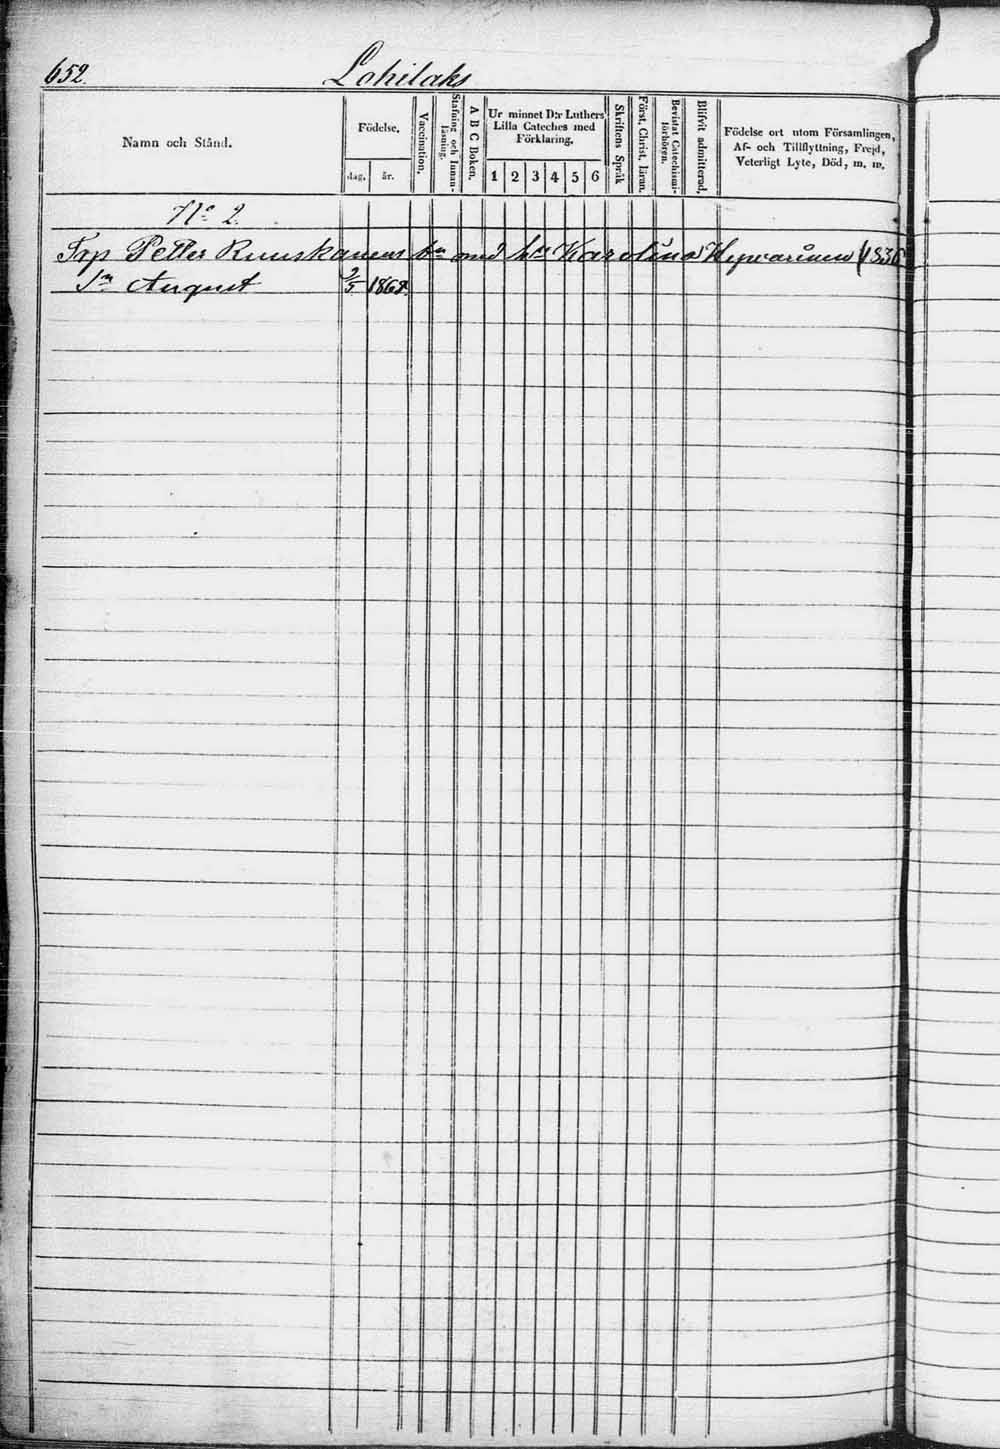 652.
Lohilaks
Namn och Stånd.
Födelse.
dag.
år.
Vaccination.
Stafning och Innanläsning.
A B C Boken.
Ur minnet D:r Luthers
Lilla Cateches med
Förklaring.
1 2 3 4 5 6
Skriftens Språk
Först. Christ. läran.
Bevistat Catechismiförhören.
Blifvit admitterad.
Födelse ort utom Församlingen,
Af- och Tillflyttning, Frejd,
Veterligt Lyte, Död, m. m.
N:o 2.
Trp Petter Ruuskanens bn med h:u Karolina
Sn August 2/5 1868.